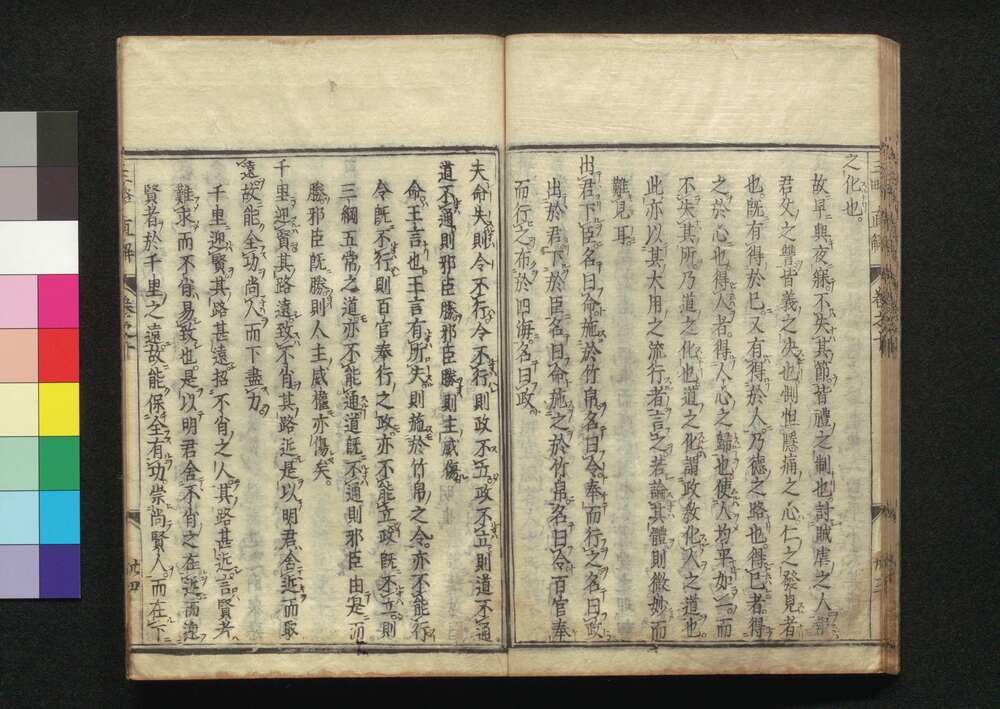 之化也。
故早興夜寐不失其節皆禮之制也討賊虐之人報
君父之讐皆義之決也惻怛隱痛之心仁之發見者
也既有得於己又有得於人乃德之路也得己者得
之於心也得人者得人心之歸也使人均平如一而
不失其所乃道之化也道之化謂政教化人之道也
此亦以其大用之流行者言之若論其體則微妙而
難見耳
出君下臣名曰命施於竹帛名曰令奉而行之名曰政
出於君下於臣名曰命施之於竹帛名曰令百官奉
而行之布於四海名曰政
夫命失則令不行令不行則政不立政不立則道不通
道不通則邪臣勝邪臣勝則主威傷
命王言也王言有所失則施於竹帛之令亦不能行
令既不行則百官奉行之政亦不能立政既不立則
三綱五常之道亦不能通道既不通則邪臣由是而
勝邪臣既勝則人主威權亦傷矣。
千里迎賢其路遠致不肖其路近是以明君舍近而取
遠故能全功尚人而下盡力
千里迎賢其路甚遠招不肖之人其路甚近言賢者
難求而不肖易致也是以明君舍不肖之在近而
賢者於千里之遠故能保全有功崇尚賢人而在下
三略直解 卷之下 廿四